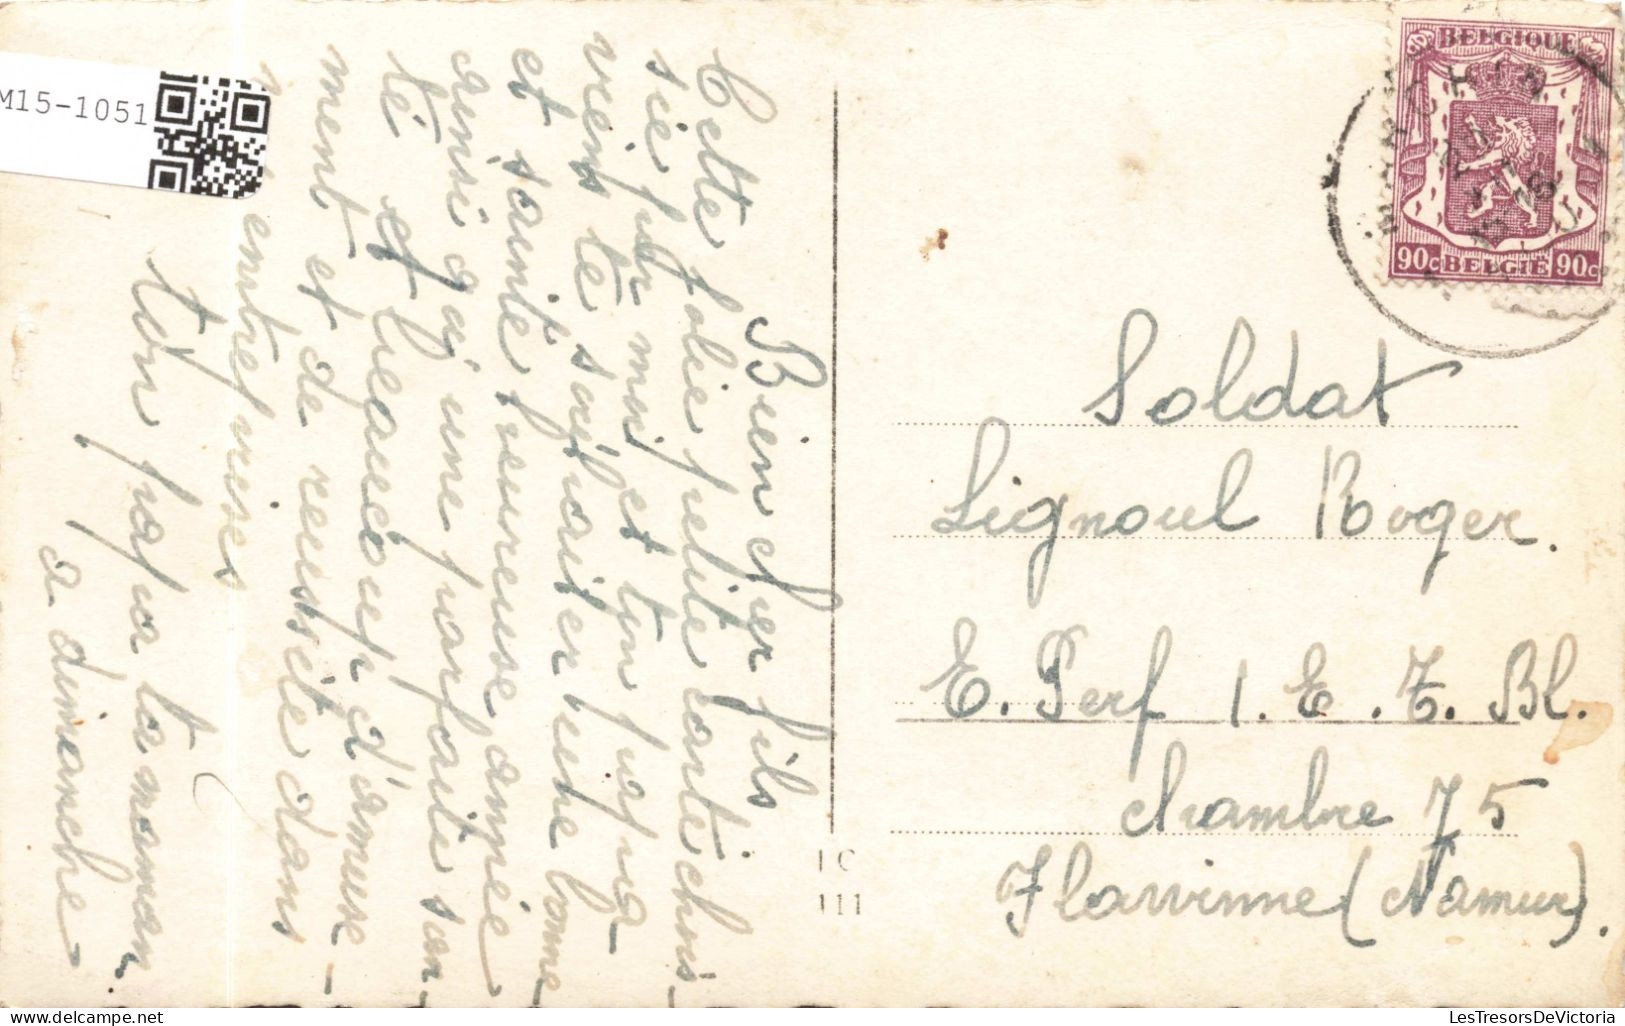 M15-1051
Bien cher fils
Cette jolie petite carte chois-
sie par moi et ton papa
viens te souhaiter une bonne
et sainte heureuse année
ainsi qu'une parfaite san-
té et beaucoup d'amuse-
ment et de reussite dans
entreprises
ton papa ta maman
a dimanche
BELGIQUE
90c BELGIE 90c
Soldat
Lignoul Roger.
E. Perf 1. E. T. Bl.
Chambre 75
Flawinne (Namur).
LesTresorsDeVictoria